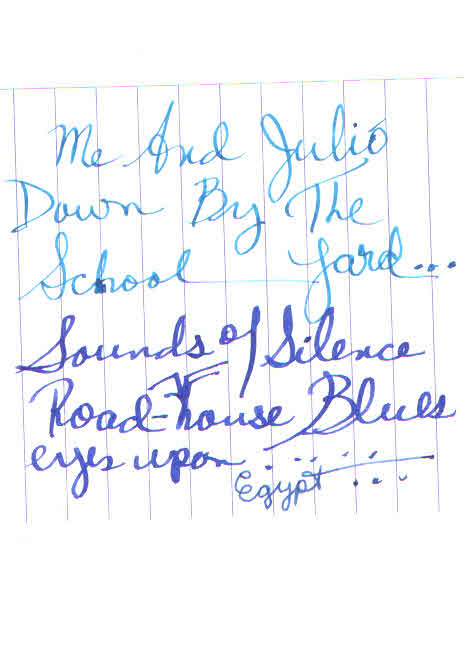 Me And Julio
Down By The
School Yard...
Sounds of Silence
Road-house Blues
eyes upon .....
Egypt ...